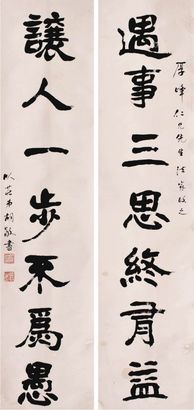 遇事三思終有益
厚峰仁兄先生法家政之
讓人一步不為愚
以莊弟胡敬書